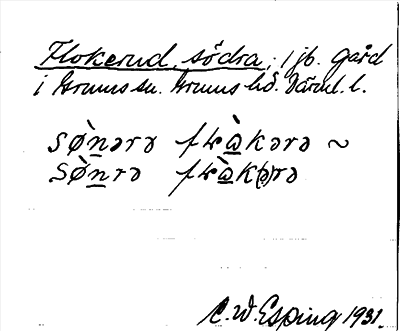 Flokerud, södra, 1 jb. gård
i Grums sn. Grums hd. Värml. l.
sø̀nərə flɷ̀kərə ~
sø̀nrə flɷ̀k(ə)rə
C. W. Esping 1931.